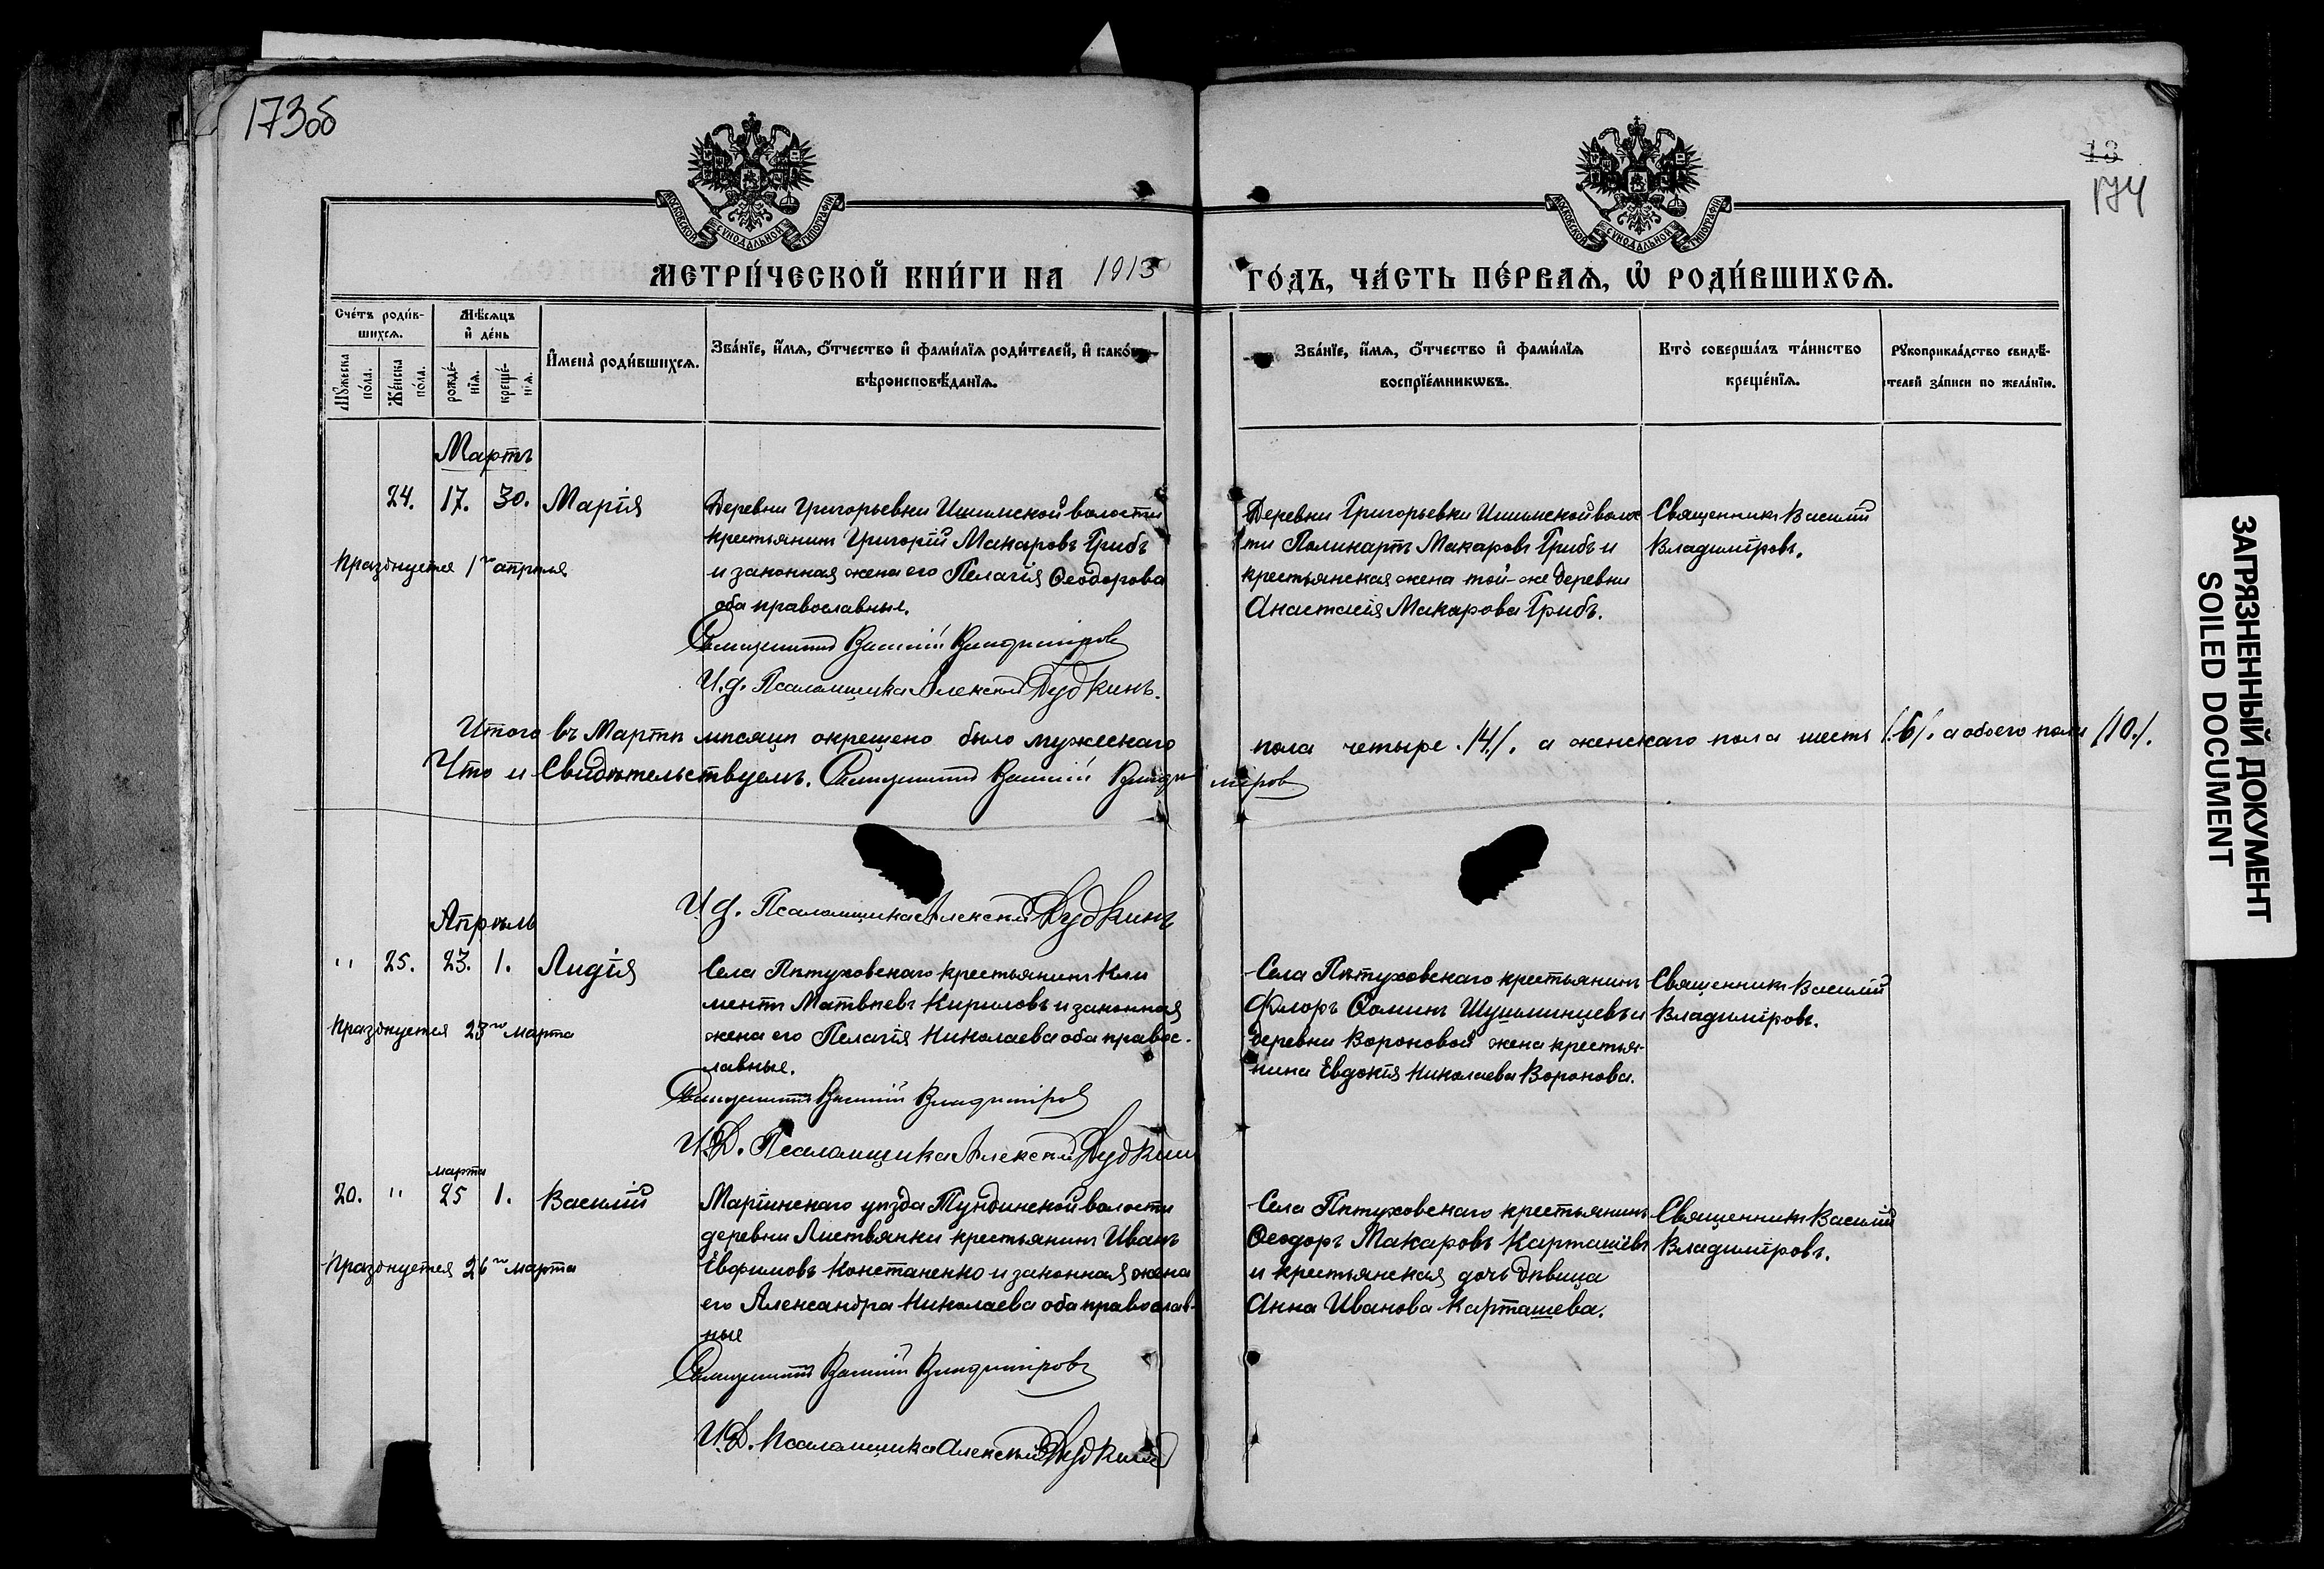 173об
13
174
МОСКОВСКОЙ СѴНОДАЛЬНОЙ ТИПОГРАФІИ
МОСКОВСКОЙ СѴНОДАЛЬНОЙ ТИПОГРАФІИ
МЕТРИ́ЧЕСКОЙ КНИ́ГИ НА 1913 ГО́ДЪ, ЧА́СТЬ ПЕ́РВАѦ, Ѡ҆ РОДИ́ВШИХСѦ.
Сче́тъ роди́в-
шихсѧ.
Мꙋ́жеска
по́ла.
Же́нска
по́ла.
Мѣ́сѧцъ
и҆ де́нь
рожде́-
нїѧ.
креще́-
нїѧ.
И҆мена̀ роди́вшихсѧ.
Зва́нїе, и҆́мѧ, ѻ҆́тчество и҆ фами́лїѧ роди́телей, и҆ како́гѡ
вѣроисповѣ́данїѧ.
Зва́нїе, и҆́мѧ, ѻ҆́тчество и҆ фами́лїѧ
воспрїе́мникѡвъ.
Кто̀ соверша́лъ та́инство
креще́нїѧ.
Рꙋкоприкла́дство свидѣ́-
телей за́писи по жела́нїю.
Мартъ
24. 17. 30. Марія
Празднуется 1го апрѣля
Деревни Григорьевки Ишимской волости
крестьянинъ Григорій Макаровъ Грибъ
и законная жена его Пелагія Ѳеодорова
оба православные.
Священникъ Василій Владиміровъ
И.д. Псаломщика Алексѣй Дудкинъ.
Деревни Григорьевки Ишимской волос
ти Поликарпъ Макаровъ Грибъ и
крестьянская жена той-же деревни
Анастасія Макарова Грибъ.
Священникъ Василій
Владиміровъ.
Итого въ Мартѣ мѣсяцѣ окрещено было мужескаго пола четыре /4/. а женскаго пола шесть /6/. а обоего пола /10/.
Что и свидѣтельствуемъ. Священникъ Василій Владиміровъ
И.д. Псаломщика Алексѣй Дудкинъ
Апрѣль
" 25. 23. 1. Лидія
Празднуется 23го марта
Села Пѣтуховскаго крестьянинъ Кли
ментъ Матвѣевъ Кириловъ и законная
жена его Пелагія Николаева оба правос-
лавные.
Священникъ Василій Владиміровъ
И.Д. Псаломщика Алексѣй Дудкинъ
Села Пѣтуховскаго крестьянинъ
Флоръ Ѳоминъ Шушминцевъ и
деревни Вороновой жена крестья-
нина Евдокія Николаева Воронова.
Священникъ Василій
Владиміровъ.
марта
20. " 25 1. Василій
Празднуется 26го марта
Маріинскаго уѣзда Тундинской волости
деревни Листвянки крестьянинъ Иванъ
Евфимовъ Констаненко и законная жена
его Александра Николаева оба православ-
ные
Священникъ Василій Владиміровъ
И.Д. Псаломщика Алексѣй Дудкинъ
Села Пѣтуховскаго крестьянинъ
Ѳеодоръ Макаровъ Карташевъ
и крестьянская дочь дѣвица
Анна Иванова Карташева.
Священникъ Василій
Владиміровъ.
ЗАГРЯЗНЕННЫЙ ДОКУМЕНТ
SOILED DOCUMENT